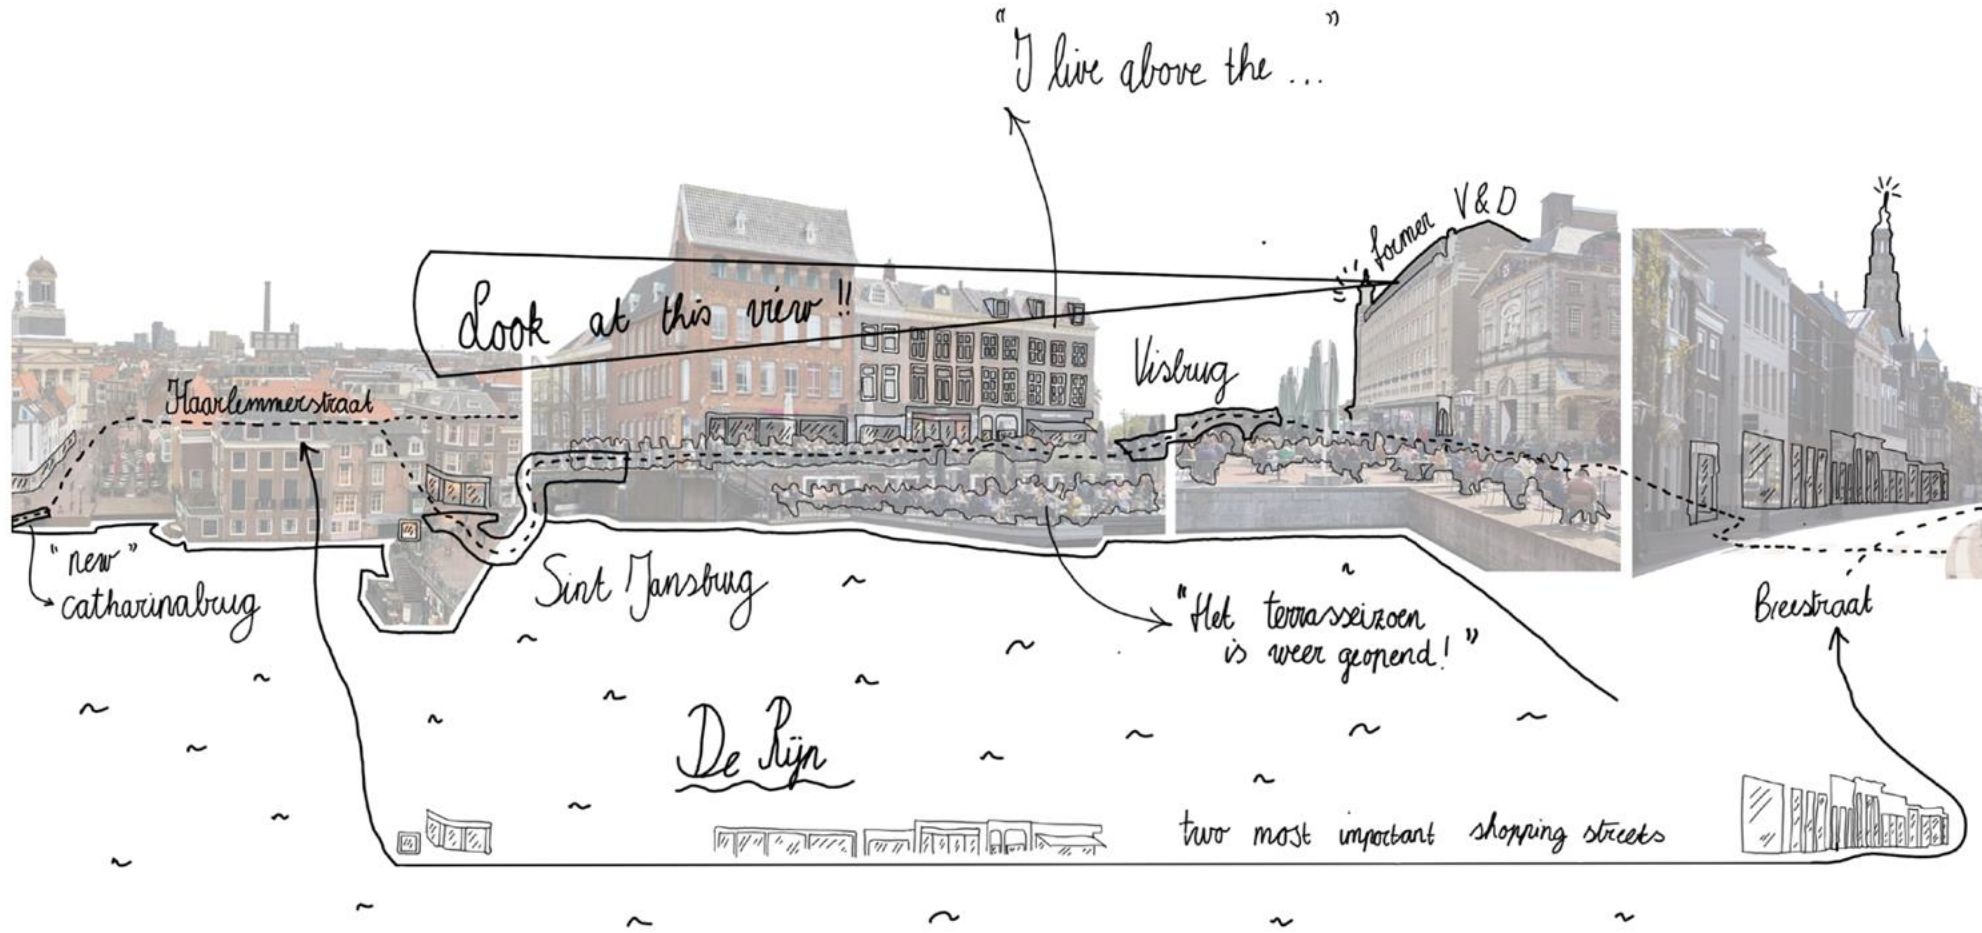 "I live above the ..."
Former V&D
Look at this view!!
Visbrug
Haarlemmerstraat
"new"
catharinabrug
Sint Jansbrug
"Het terrasseizoen
is weer geopend!"
Breestraat
De Rijn
two most important shopping streets